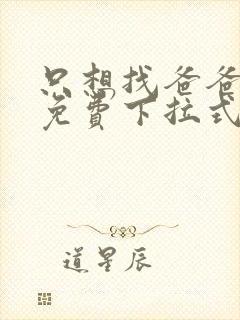 只想找爸爸
免费下拉式
道星辰